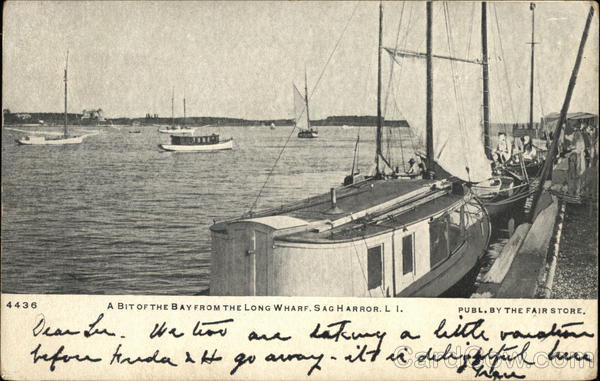 4436 A BIT OF THE BAY FROM THE LONG WHARF, SAG HARROR, L I. PUBL. BY THE FAIR STORE.
Dear Lu. We two are taking a little vacation
before Frieda & H go away - it is delightful here
CardCow.com